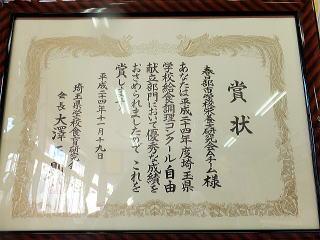 賞状
春日部市学校栄養士研究会Aチーム様
あなたは平成二十四年度埼玉県
学校給食調理コンクール自由
献立部門において優秀な成績を
おさめられましたので これを
賞します
平成二十四年十二月十九日
埼玉県学校食育研究会
会長 大澤